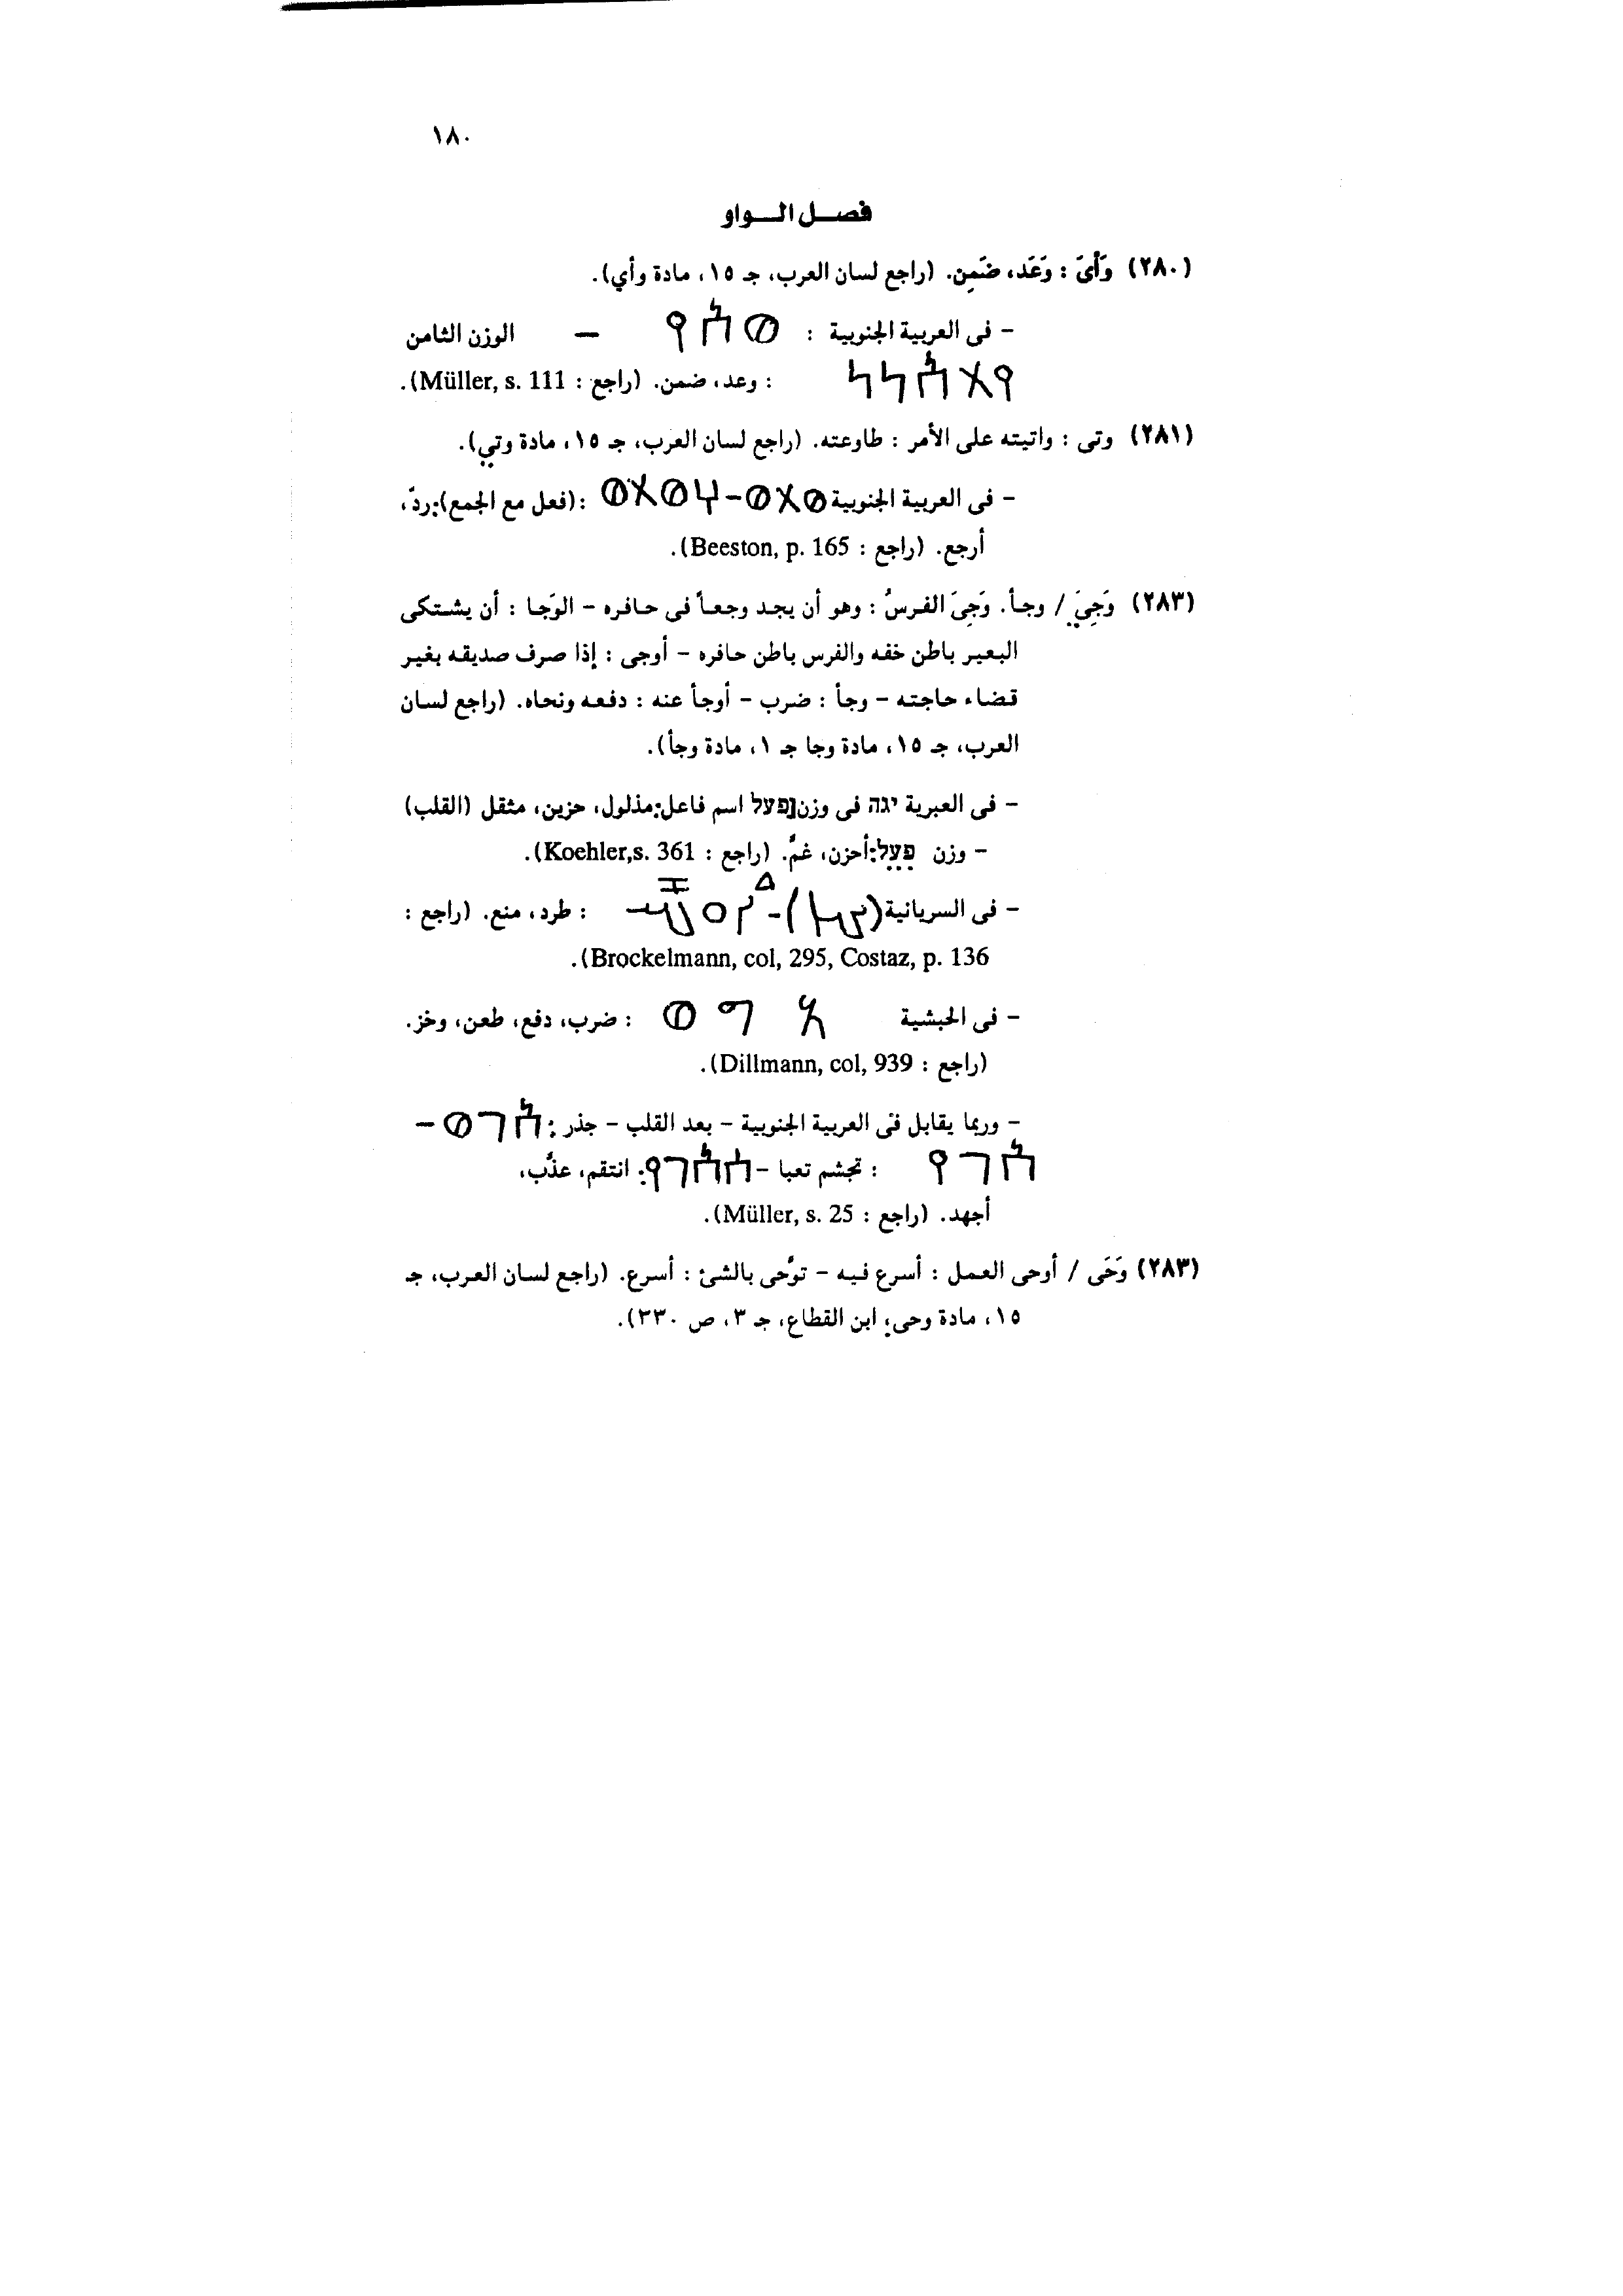 ١٨٠
فصــل الــواو
(٢٨٠) وَأىَ : وَعَد، ضَمِن. (راجع لسان العرب، جـ ١٥، مادة وأي).
- فى العربية الجنوبية : 𐩥𐩱𐩺 – الوزن الثامن
𐩺𐩩𐩱𐩬𐩬 : وعد، ضمن. (راجع : Müller, s. 111).
(٢٨١) وتى : واتيته على الأمر : طاوعته. (راجع لسان العرب، جـ ١٥، مادة وتي).
- فى العربية الجنوبية 𐩥𐩩𐩥-𐩠𐩥𐩩𐩥 :(فعل مع الجمع):ردّ،
أرجع. (راجع : Beeston, p. 165).
(٢٨٣) وَجِيَ / وجأ. وَجِىَ الفرسُ : وهو أن يجد وجعاً فى حافره - الوَجا : أن يشتكى
البعير باطن خفه والفرس باطن حافره - أوجى : إذا صرف صديقه بغير
قضاء حاجته - وجأ : ضرب - أوجأ عنه : دفعه ونحاه. (راجع لسان
العرب، جـ ١٥، مادة وجا جـ ١، مادة وجأ).
- فى العبرية יגה فى وزن נפעל اسم فاعل:مذلول، حزين، مثقل (القلب)
- وزن פעל:أحزن، غمَّ. (راجع : Koehler,s. 361).
- فى السريانية : طرد، منع. (راجع :
Brockelmann, col, 295, Costaz, p. 136).
- فى الحبشية : ضرب، دفع، طعن، وخز.
(راجع : Dillmann, col, 939).
- وربما يقابل فى العربية الجنوبية - بعد القلب - جذر : 𐩱𐩴𐩥 -
𐩱𐩴𐩺 : تجشم تعبا - : انتقم، عذَّب،
أجهد. (راجع : Müller, s. 25).
(٢٨٣) وَحَى / أوحى العمل : أسرع فيه - توَّحى بالشئ : أسرع. (راجع لسان العرب، جـ
١٥، مادة وحى؛ ابن القطاع، جـ ٣، ص ٣٣٠).